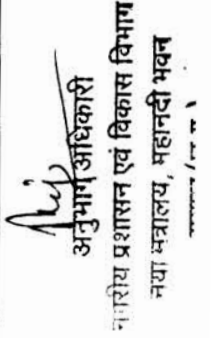 अनुभाग अधिकारी
प्रशासन एवं विकास विभाग
नया मंत्रालय, महानदी भवन